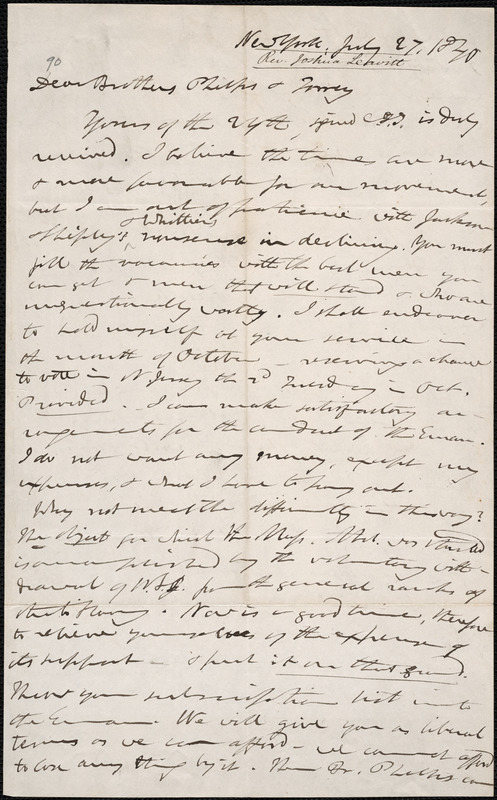 New York, July 27, 1840
Rev. Joshua Leavitt
90
Dear Brothers Phelps & Torrey
Yours of the 24th, signed C.T.T. is duly
received. I believe the times are more
& more favorable for our movement,
but I am out of patience with Jackson
& Shipley's & Whittier's nonsense in declining. You must
fill the vacancies with the best men you
can get & men that will stand & who are
unquestionably worthy. I shall endeavor
to hold myself at your service in
the month of October - reserving a chance
to vote in N Jersey the 2d Tuesday in Oct.
Provided - I can make satisfactory ar-
rangements for the conduct of the Eman.
I do not want any money, except my
expenses, & what I have to pay out.
Why not meet the difficulty in this way?
The object for which the Mass. Abol. was started
is accomplished by the voluntary with-
drawal of W.L.G. from the general ranks of
Now is a good time, therefore
to relieve yourselves of the expense of
its support - & put it on that ground.
Throw your subscription list into
the Eman. We will give you as liberal
terms as we can afford - we cannot afford
to lose any thing by it. Then Br. Phelps can